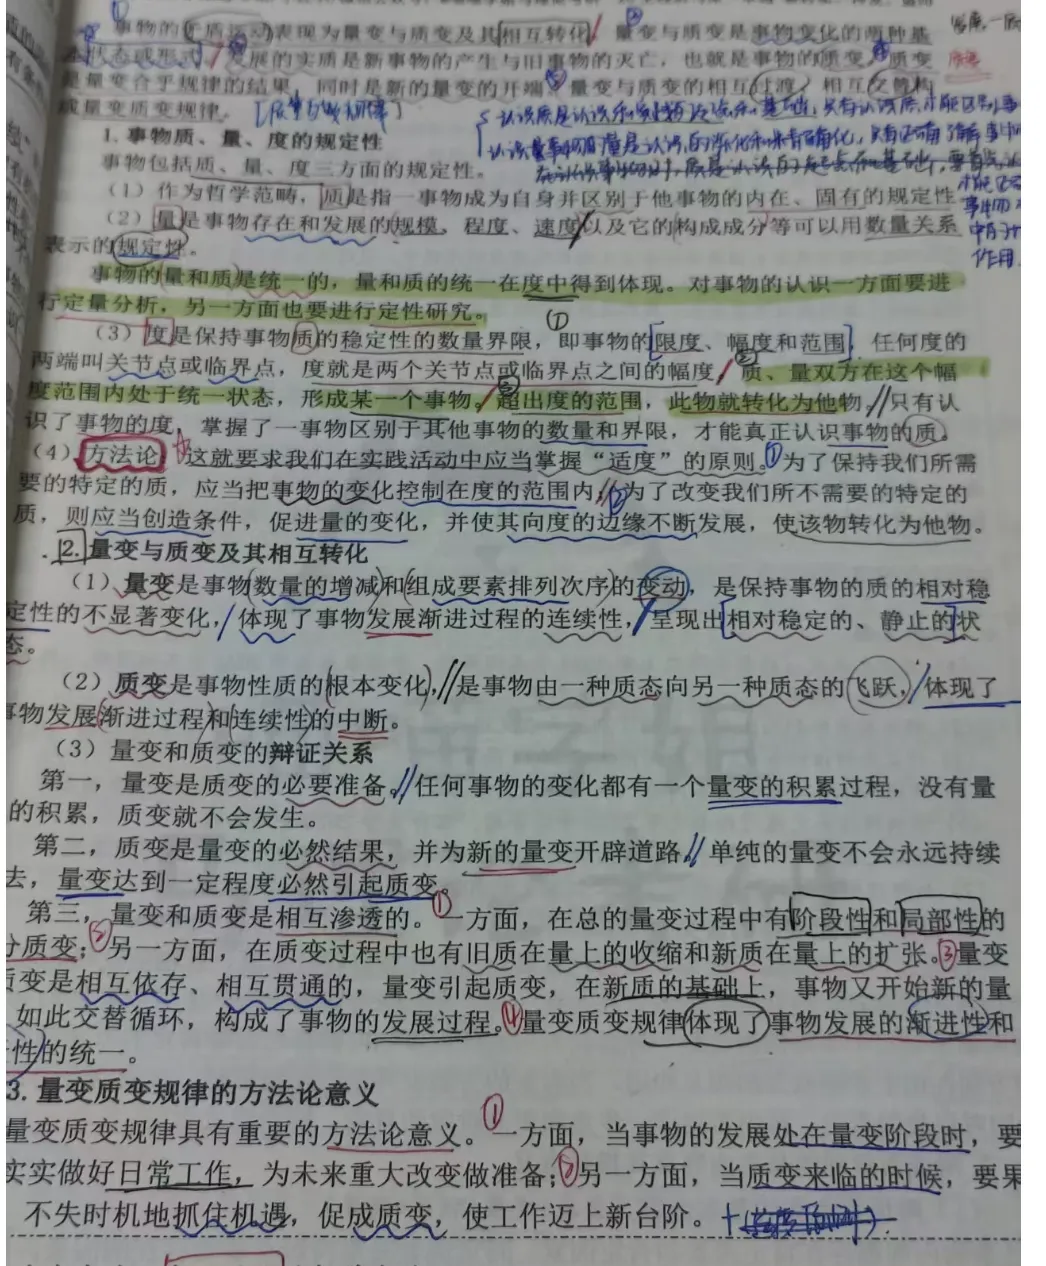 事物的矛盾运动表现为量变与质变及其相互转化 量变与质变是事物变化的两种基
本状态或形式 发展的实质是新事物的产生与旧事物的灭亡，也就是事物的质变。质变
是量变合乎规律的结果，同时是新的量变的开端。量变与质变的相互过渡，相互交替构
成量变质变规律。
1. 事物质、量、度的规定性
事物包括质、量、度三方面的规定性。
（1）作为哲学范畴，质是指一事物成为自身并区别于他事物的内在、固有的规定性
（2）量是事物存在和发展的规模，程度、速度以及它的构成成分等可以用数量关系
表示的规定性。
作用
事物的量和质是统一的，量和质的统一在度中得到体现。对事物的认识一方面要进
行定量分析，另一方面也要进行定性研究。
①
（3）度是保持事物质的稳定性的数量界限，即事物的限度、幅度和范围，任何度的
两端叫关节点或临界点，度就是两个关节点或临界点之间的幅度 质、量双方在这个幅
度范围内处于统一状态，形成某一个事物。超出度的范围，此物就转化为他物，只有认
识了事物的度，掌握了一事物区别于其他事物的数量和界限，才能真正认识事物的质。
（4）方法论：这就要求我们在实践活动中应当掌握“适度”的原则。①为了保持我们所需
要的特定的质，应当把事物的变化控制在度的范围内；②为了改变我们所不需要的特定的
质，则应当创造条件，促进量的变化，并使其向度的边缘不断发展，使该物转化为他物。
2. 量变与质变及其相互转化
（1）量变是事物数量的增减和组成要素排列次序的变动，是保持事物的质的相对稳
定性的不显著变化，体现了事物发展渐进过程的连续性，呈现出相对稳定的、静止的状
态。
（2）质变是事物性质的根本变化，是事物由一种质态向另一种质态的飞跃，体现了
事物发展渐进过程和连续性的中断。
（3）量变和质变的辩证关系
第一，量变是质变的必要准备。任何事物的变化都有一个量变的积累过程，没有量
的积累，质变就不会发生。
第二，质变是量变的必然结果，并为新的量变开辟道路。单纯的量变不会永远持续
去，量变达到一定程度必然引起质变。
第三，量变和质变是相互渗透的。①一方面，在总的量变过程中有阶段性和局部性的
分质变；②另一方面，在质变过程中也有旧质在量上的收缩和新质在量上的扩张。③量变
质变是相互依存、相互贯通的，量变引起质变，在新质的基础上，事物又开始新的量
如此交替循环，构成了事物的发展过程。④量变质变规律体现了事物发展的渐进性和
性的统一。
3. 量变质变规律的方法论意义
量变质变规律具有重要的方法论意义。①一方面，当事物的发展处在量变阶段时，要
实实做好日常工作，为未来重大改变做准备；②另一方面，当质变来临的时候，要果
不失时机地抓住机遇，促成质变，使工作迈上新台阶。